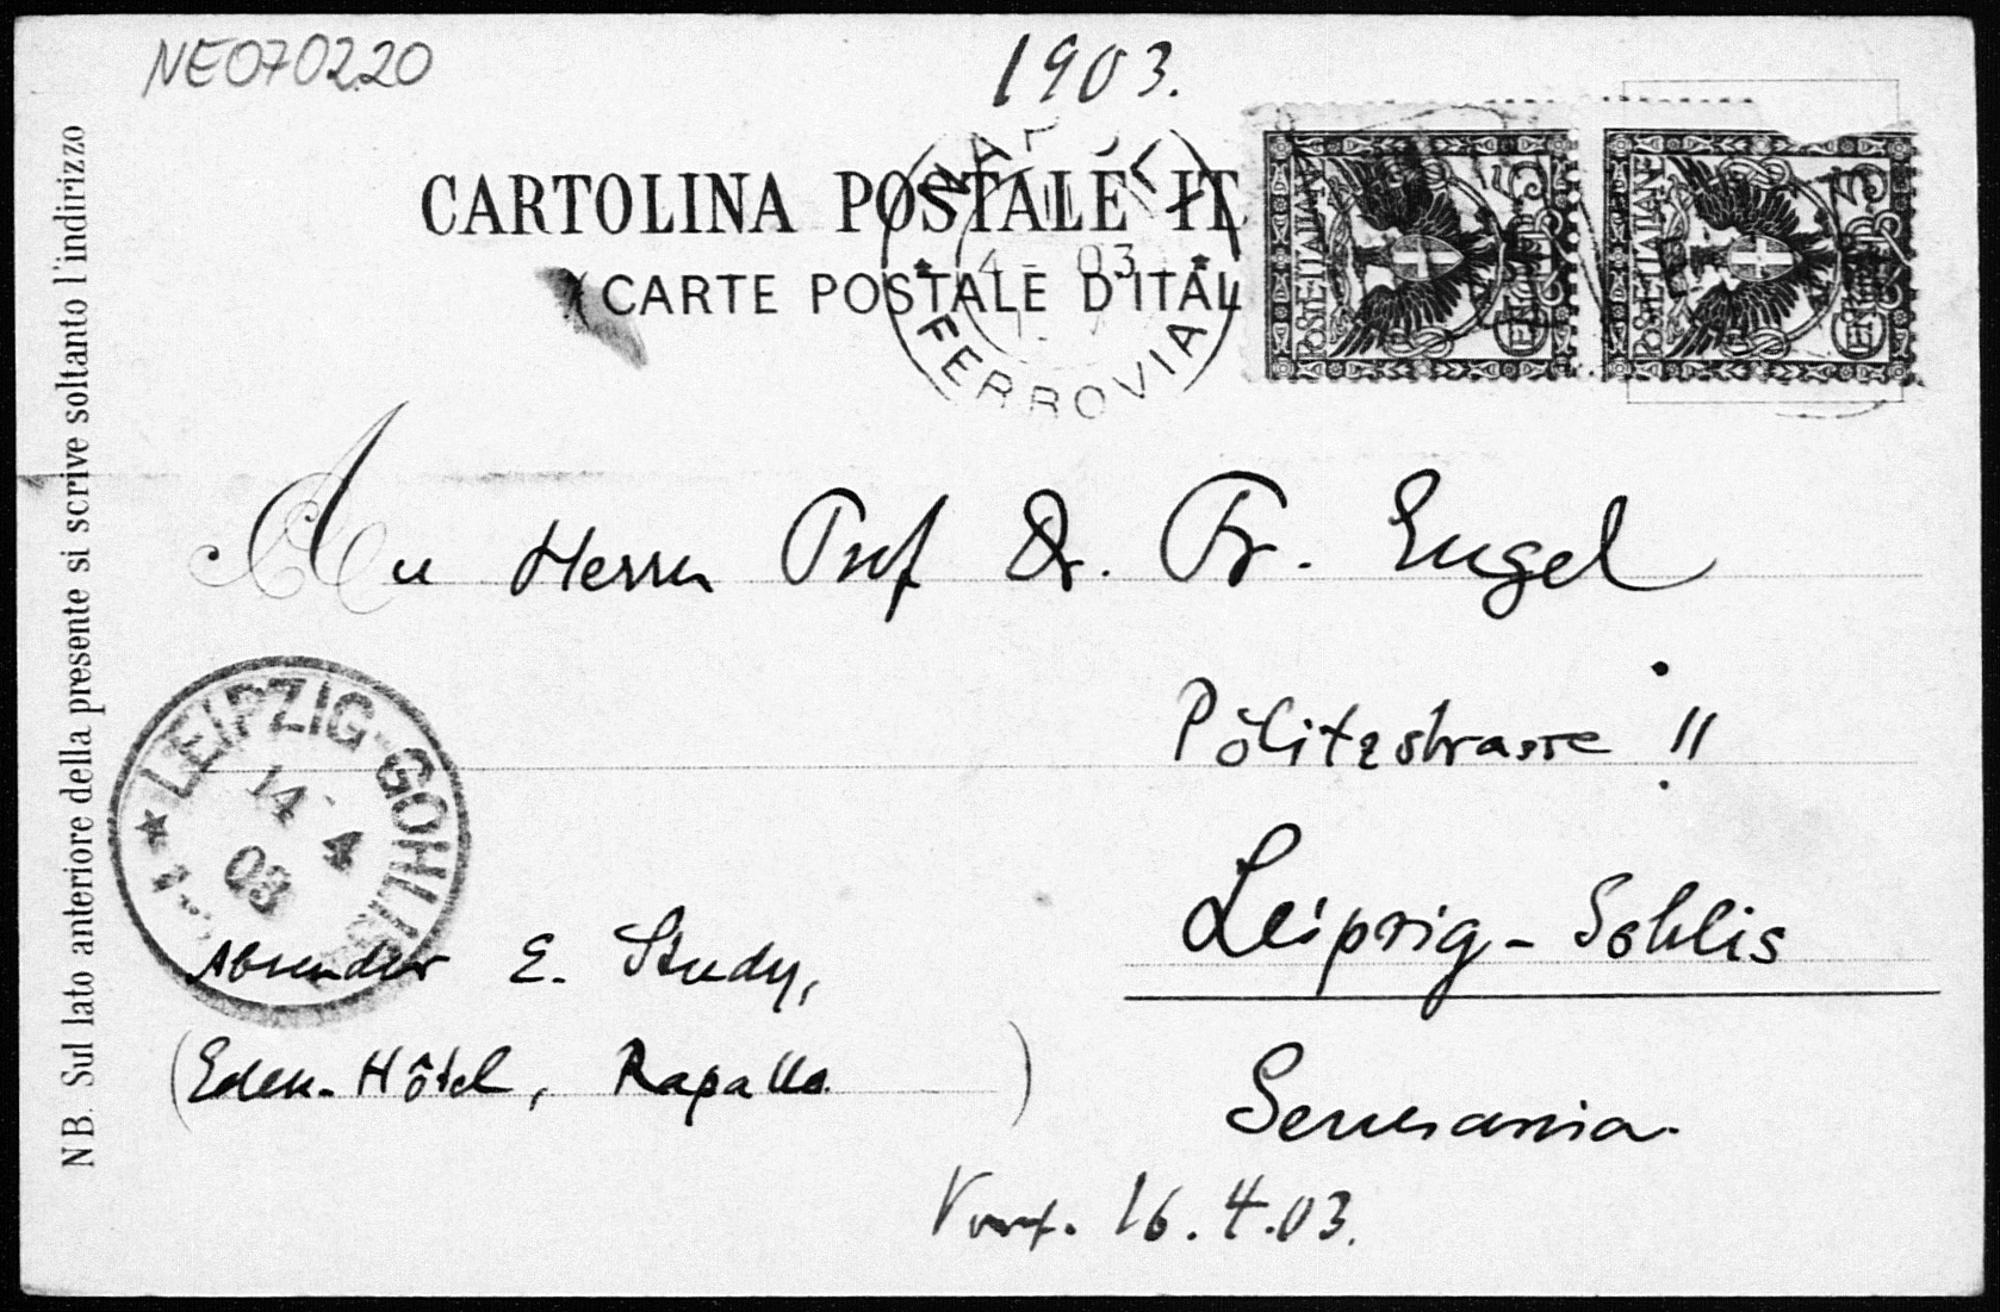 NE070220
1903.
CARTOLINA POSTALE IT
(CARTE POSTALE D'ITAL
NAPOLI
4 - 03
FERROVIA
POSTE ITALIANE
CENTESIMI 5
POSTE ITALIANE
CENTESIMI 5
NB. Sul lato anteriore della presente si scrive soltanto l'indirizzo
An Herrn Prof Dr. Fr. Engel
Pölitzstrasse
LEIPZIG-GOHLIS
14 4
03
Leipzig-Gohlis
Absender E. Study,
(Eden-Hôtel, Rapallo)
Germania.
16.4.03.